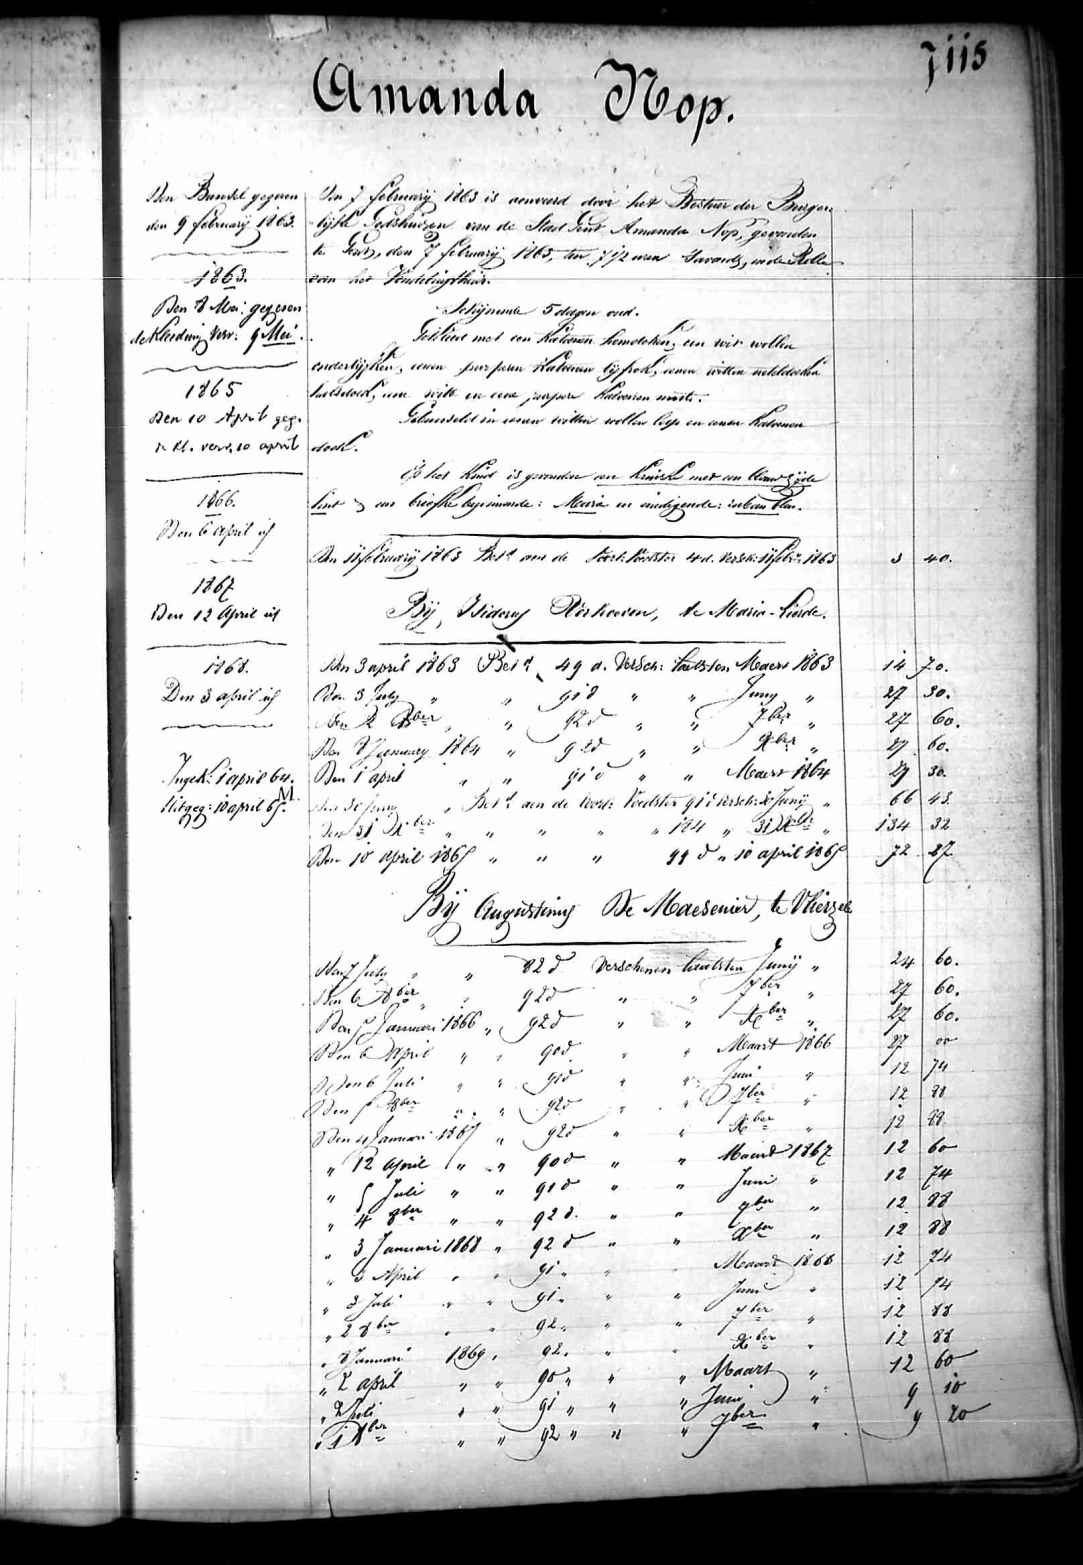 7115
Amanda Nop.
Den Bundel gegeven
den 9 february 1863.
1863.
Den 8 Mei: gegeven
de Kleeding verv: 9 Mei.
1865
Den 10 April geg.
kl. verv. 10 april
1866.
Den 6 april id
1867
Den 12 April id
1868.
Den 3 april id
Ingek: 1 april 64.
Uitgeg: 10 april 65.
Den 7 february 1863 is aenveerd door het Bestuur der Burger-
lyke Godshuizen van de Stad Gent Amanda Nop, gevonden
te Gent, den 7 february 1863, ten 7 1/2 uren 'savonds, in de Rolle
van het Vondelingshuis.
Schynende 5 dagen oud.
Gekleed met een Katoenen hemdeken, een wit wollen
onderlyfken, eenen purperen Katoenen lyfrok, eenen witten
halsdoek, eene witte en eene purpere Katoenen muts.
Gebunseld in eenen witten wollen lap en eenen Katoenen
doek.
Op het Kind is gevonden een Kruiske met een blauw zyde
lint en een briefke beginnende: Maria en eindigende:
Den 11 february 1863 Bet.d aen de Voedster 4 d. versch: 11 febr. 1863 3 40.
By Isidorus, te Maria-Lierde.
Den 3 april 1863 Bet.d 49 d. Versch: laetsten Maert 1863 14 70.
Den 3 July " " 91 d " " Juny " 27 30.
Den 2 8ber " " 92 d " " 7ber " 27 60.
Den 8 January 1864 " 92 d " " Xber " 27 60.
Den 1 april " " 91 d " " Maert 1864 27 30.
Den 30 Juny " Bet.d aen de Voedster 91 d versch: 30 Juny " 66 43.
Den 31 Xber " " " " " 184 " 31 Xber " 134 32
Den 10 april 1865 " " " 99 d " 10 april 1865 72 27
By Augustinus De Maesenier, te Vlierzele
Den 7 July " " 82 d Verschenen laatsten Juny " 24 60.
Den 6 8ber " " 92 d " " 7ber " 27 60.
Den 5 Januari 1866 " 92 d " " Xber " 27 60.
Den 6 April " " 90 d " " Maart 1866 27 00
Den 6 Juli " " 91 d " " Juni " 12 74
Den 5 8ber " " 92 d " " 7ber " 12 88
Den 4 Januari 1867 " 92 d " " Xber " 12 88
" 12 April " " 90 d " " Maart 1867 12 60
" 5 Juli " " 91 d " " Juni " 12 74
" 4 8ber " " 92 d. " " 7ber " 12 88
" 3 Januari 1868 " 92 d " " Xber " 12 88
" 3 April " " 91 " " " Maart 1868 12 74
" 3 Juli " " 91 " " " Juni " 12 74
" 2 8ber " " 92 " " " 7ber " 12 88
" 8 Januari 1869 " 92 " " " Xber " 12 88
" 2 april " " 90 " " " Maart " 12 60
" 2 Juli " " 91 " " " Juni " 9 10
" 1 8ber " " 92 " " " 7ber " 9 20